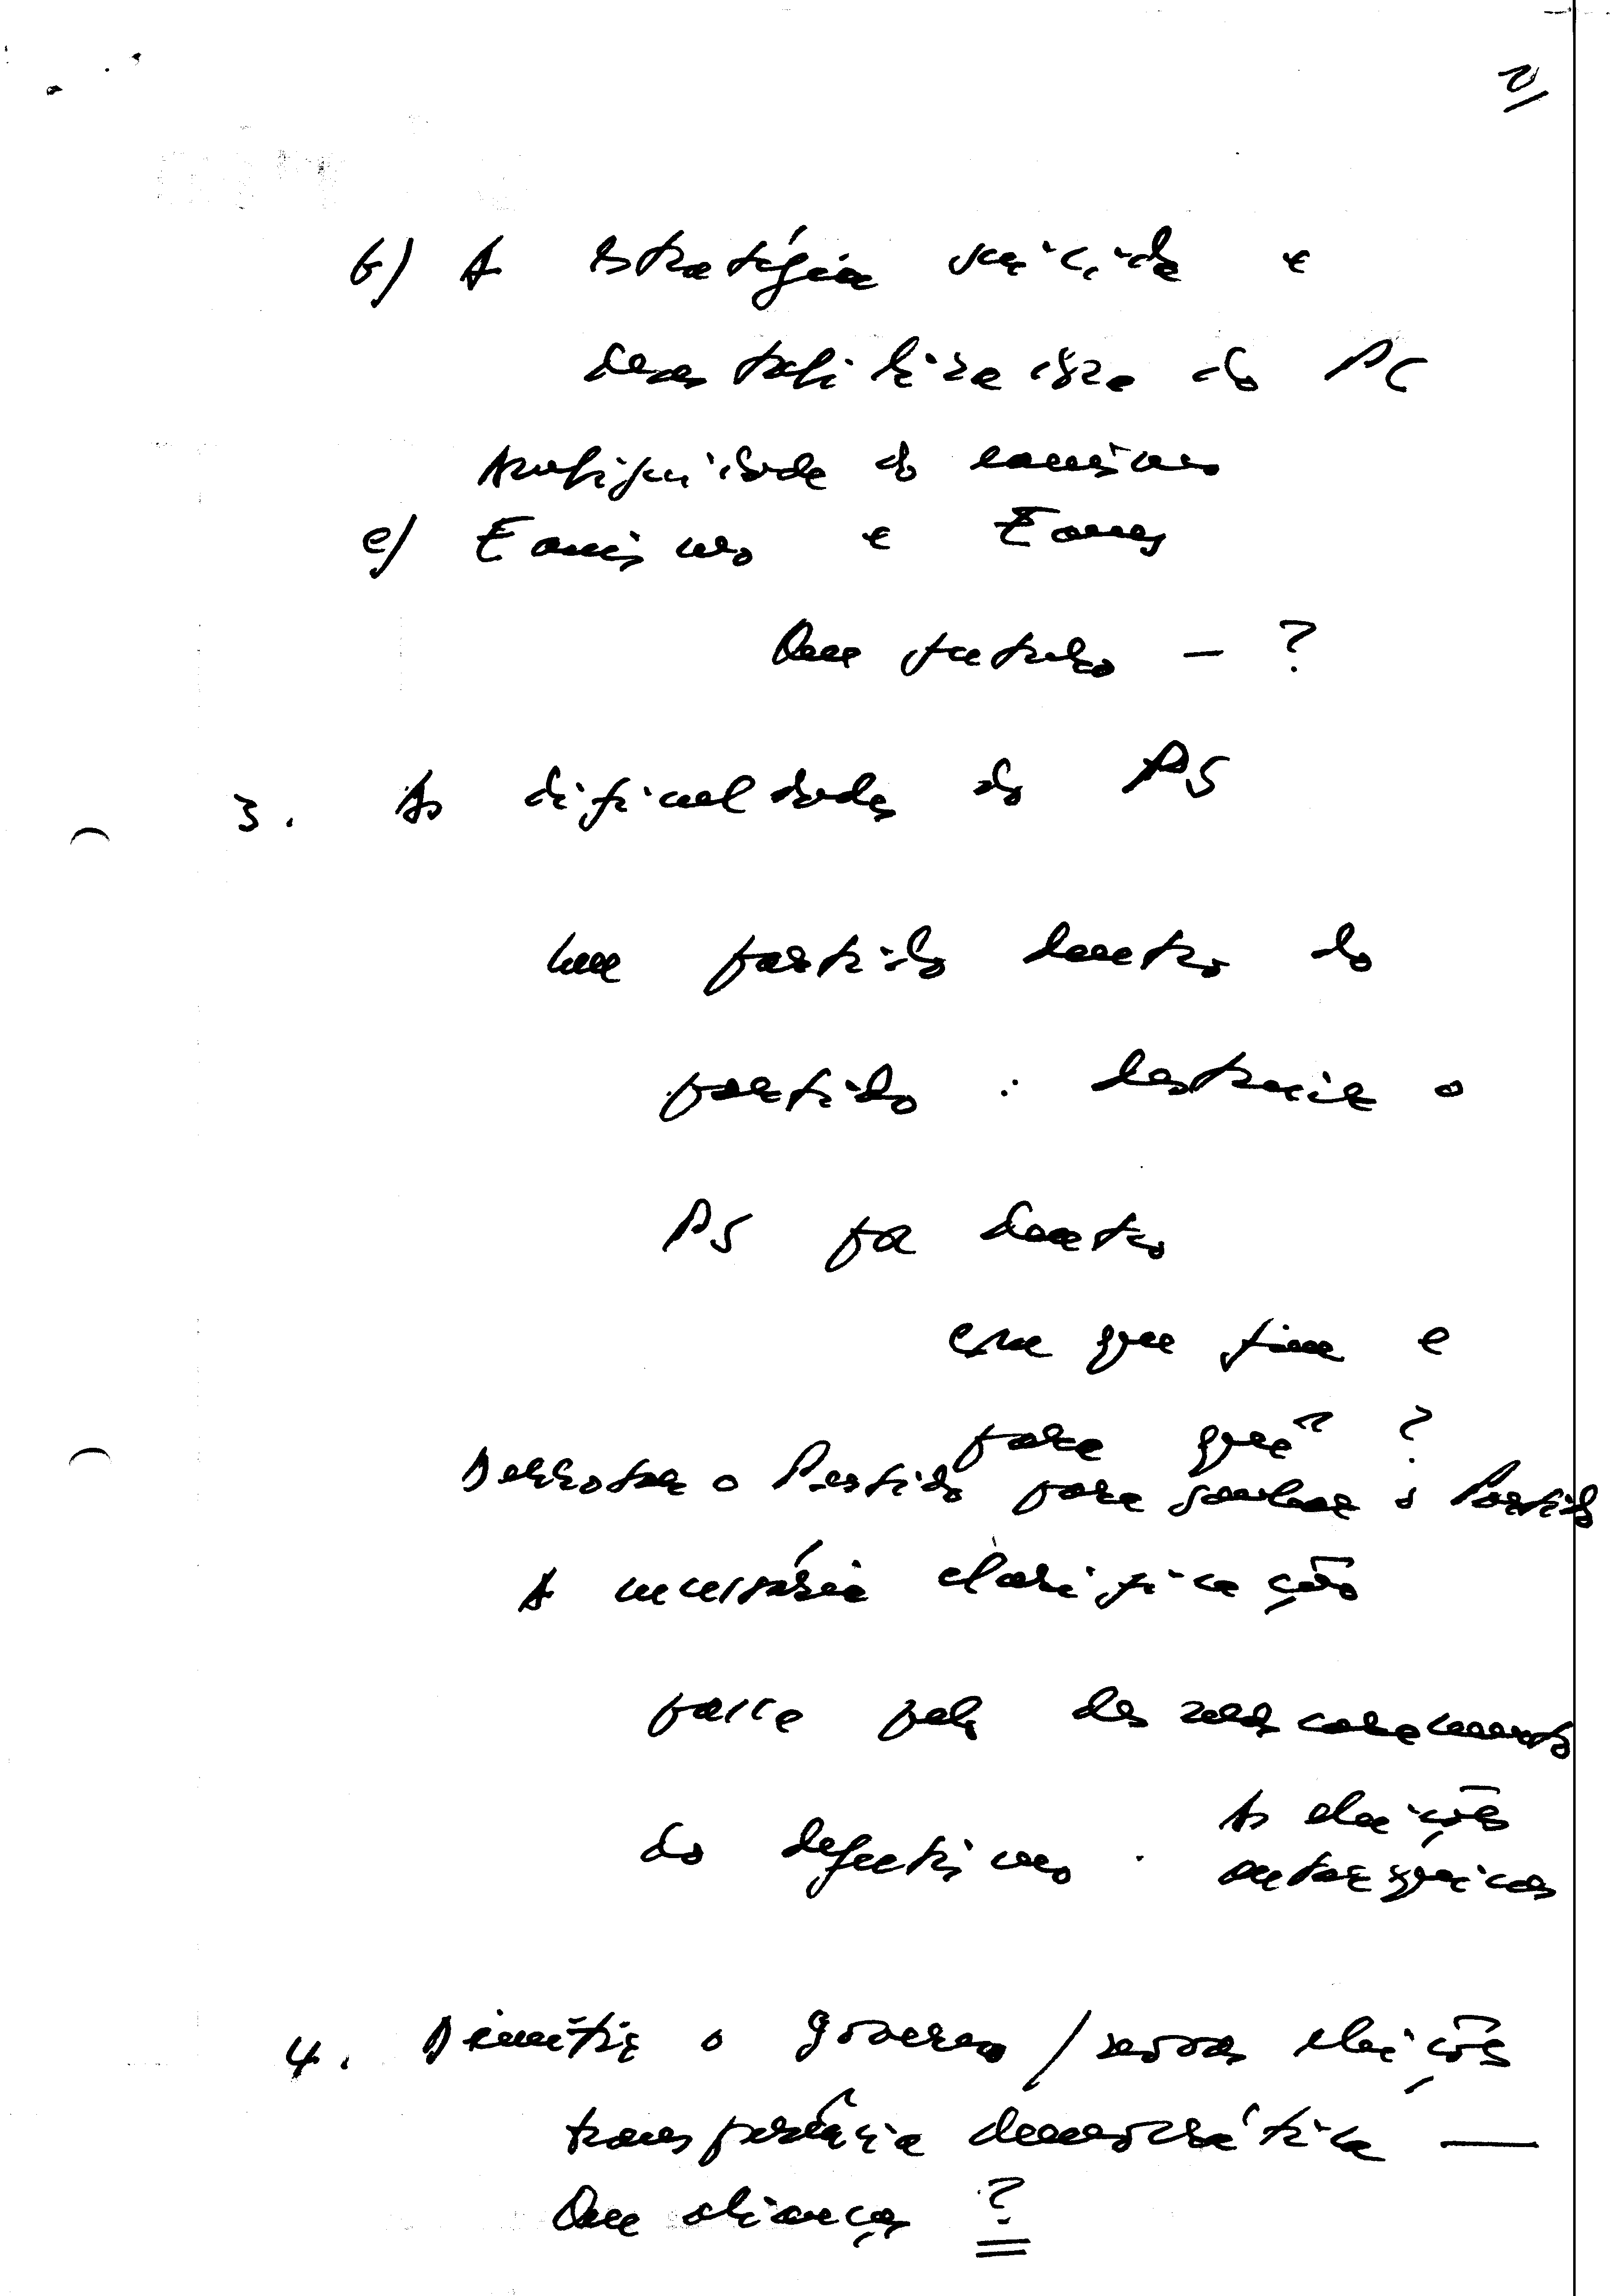 2/
b) A estratégia suicida e
desestabilizadora do PC
Ambiguidade do eanismo
c) Eanismo e Eanes
Que futuro - ?
3. As dificuldades do PS
um partido dentro do
partido: destruir o
PS por dentro
com que fim e
para quê?
Derrotar o Partido para ganhar o Partido
A necessária clarificação
passa pelo desmascaramento
do
As eleições
4. Demitir o governo / novas eleições
transparência democrática —
Que alianças ?